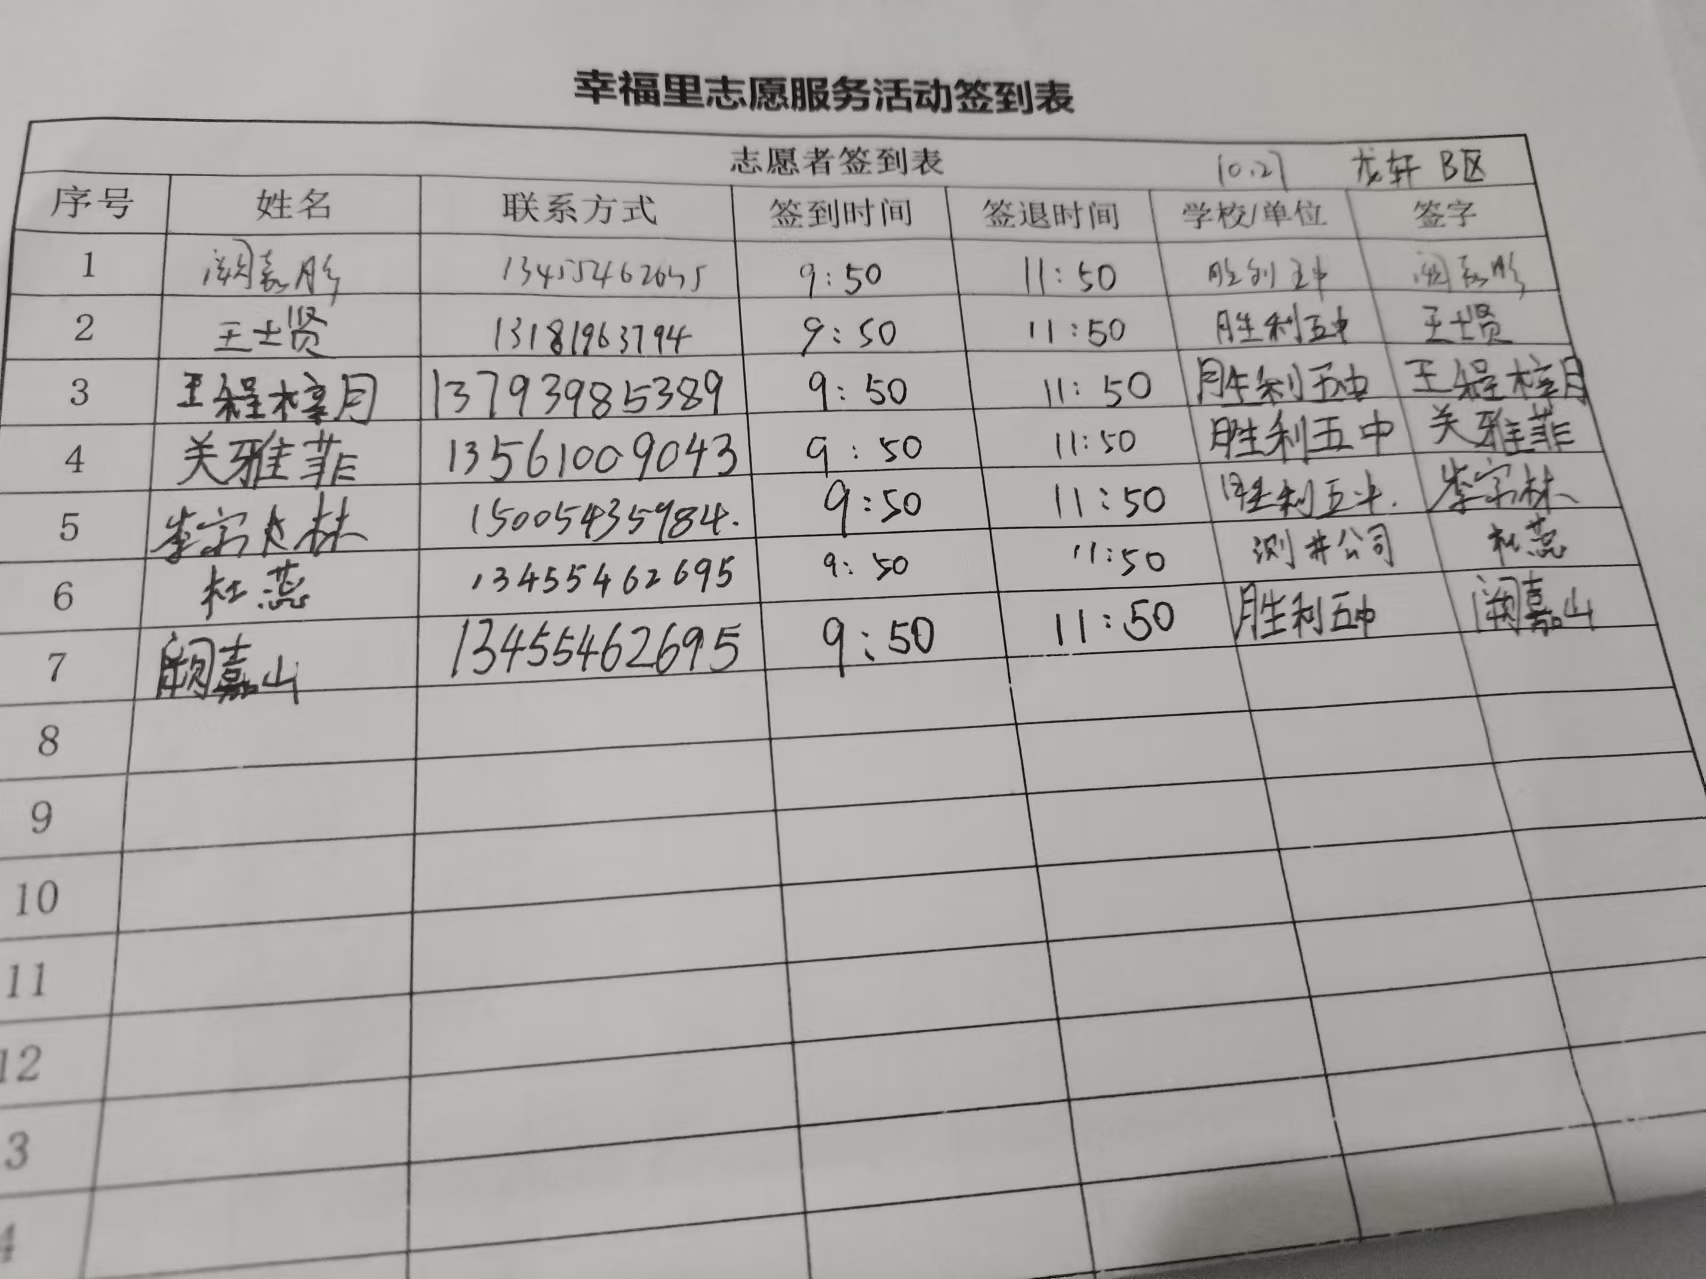 幸福里志愿服务活动签到表
志愿者签到表 10.27 龙轩 B区
序号 姓名 联系方式 签到时间 签退时间 学校/单位 签字
1 阚嘉彤 13455462695 9:50 11:50 胜利五中 阚嘉彤
2 王士贤 13181963794 9:50 11:50 胜利五中 王士贤
3 王程梓月 13793985389 9:50 11:50 胜利五中 王程梓月
4 关雅菲 13561009043 9:50 11:50 胜利五中 关雅菲
5 李宗林 15005435984. 9:50 11:50 胜利五中. 李宗林
6 杜蕊 13455462695 9:50 11:50 测井公司 杜蕊
7 阚嘉山 13455462695 9:50 11:50 胜利五中 阚嘉山
8
9
10
11
12
3
4